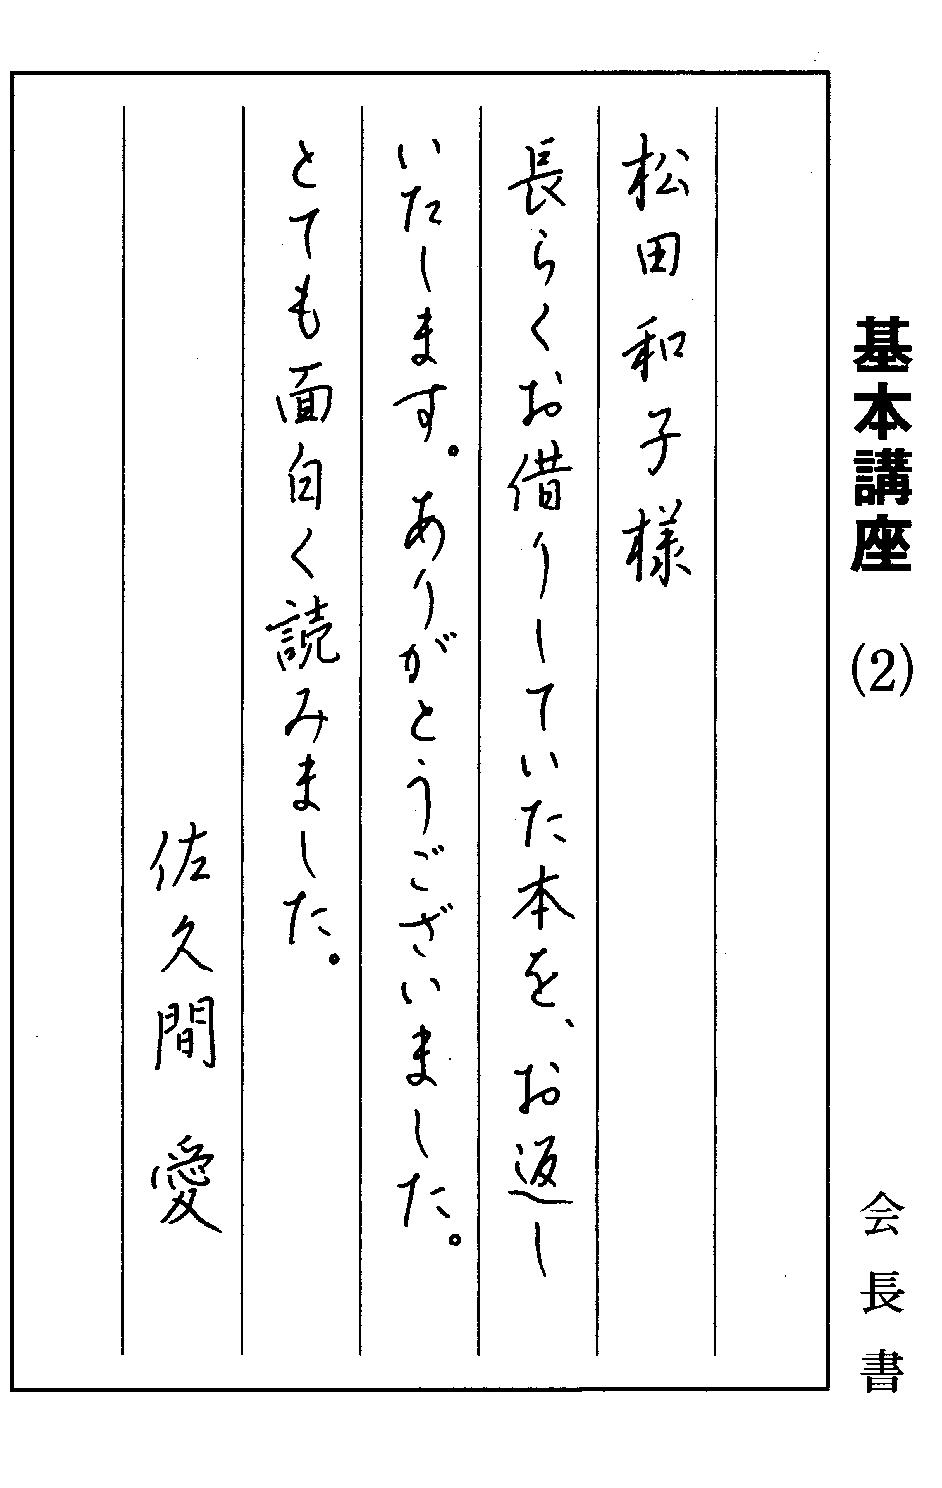 基本講座 (2)
会長書
松田和子様
長らくお借りしていた本を、お返し
いたします。ありがとうございました。
とても面白く読みました。
佐久間 愛